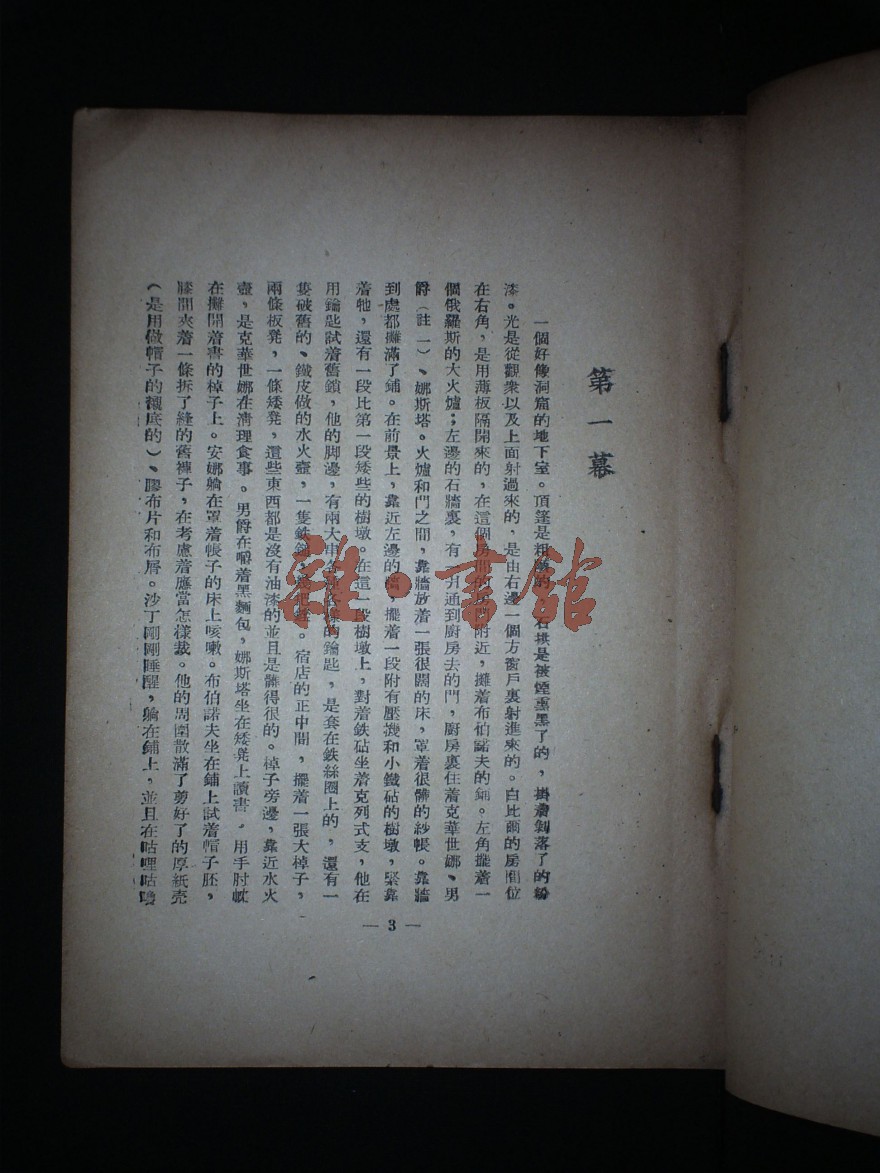 第一幕
一個好像洞窟的地下室。頂篷是粗 的 石拱是被煙熏黑了的,掛着剝落了的粉
漆。光是從觀衆以及上面射過來的,是由右邊一個方窗戶裏射進來的。白比爾的房間位
在右角,是用薄板隔開來的,在這個房間的房門附近,攤着布伯諾夫的鋪。左角擺着一
個俄羅斯的大火爐;左邊的石牆裏,有一 通到廚房去的門,廚房裏住着克華世娜、男
爵(註一)、娜斯塔。火爐和門之間,靠牆放着一張很闊的床,罩着很髒的紗帳。靠牆
到處都攤滿了鋪。在前景上,靠近左邊的牆,擺着一段附有壓機和小鐵砧的樹墩,緊靠
着牠,還有一段比第一段矮些的樹墩。在這一段樹墩上,對着鉄砧坐着克列式支,他在
用鑰匙試着舊鎖,他的脚邊,有兩大串各 各樣的鑰匙,是套在鉄絲圈上的,還有一
隻破舊的、鐵皮做的水火壺,一隻鉄錘, 把銼。宿店的正中間,擺着一張大棹子,
兩條板凳,一條矮凳,這些東西都是沒有油漆的並且是髒得很的。棹子旁邊,靠近水火
壺,是克華世娜在清理食事。男爵在嚼着黑麵包,娜斯塔坐在矮凳上讀書,用手肘
在攤開着書的棹子上。安娜躺在罩着帳子的床上咳嗽。布伯諾夫坐在鋪上試着帽子胚,
膝間夾着一條拆了縫的舊褲子,在考慮着應當怎樣裁。他的周圍散滿了剪好了的厚紙壳
(是用做帽子的襯底的)、膠布片和布屑。沙丁剛剛睡醒,躺在鋪上,並且在咕哩咕嚕
— 3 —
雜·書館